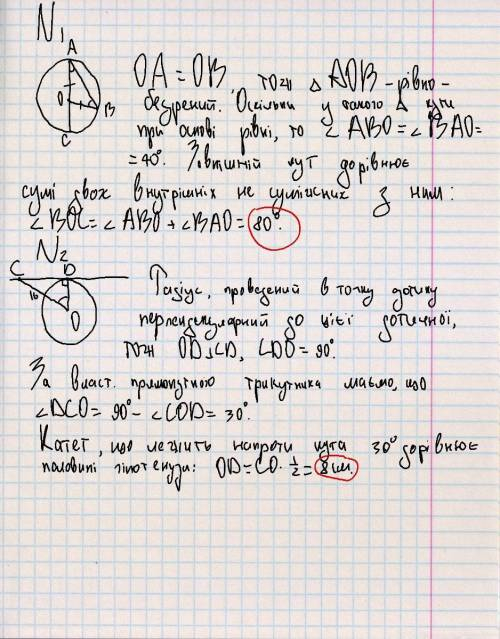 N1
A
O
B
C
OA = OB, тоді △ AOB - рівно-
бедрений. Оскільки у такого △ кути
при основі рівні, то ∠ABO = ∠BAO =
= 40°. Зовнішній кут дорівнює
сумі двох внутрішніх не суміжних з ним:
∠BOC = ∠ABO + ∠BAO = 80°.
N2
C D
16
O
Радіус, проведений в точку дотику
перпендикулярний до цієї дотичної,
тоді OD⊥CD, ∠CDO = 90°.
За власт. прямокутного трикутника маємо, що
∠DCO = 90° - ∠COD = 30°.
Катет, що лежить напроти кута 30° дорівнює
половині гіпотенузи: OD = CO · 1/2 = 8 см.